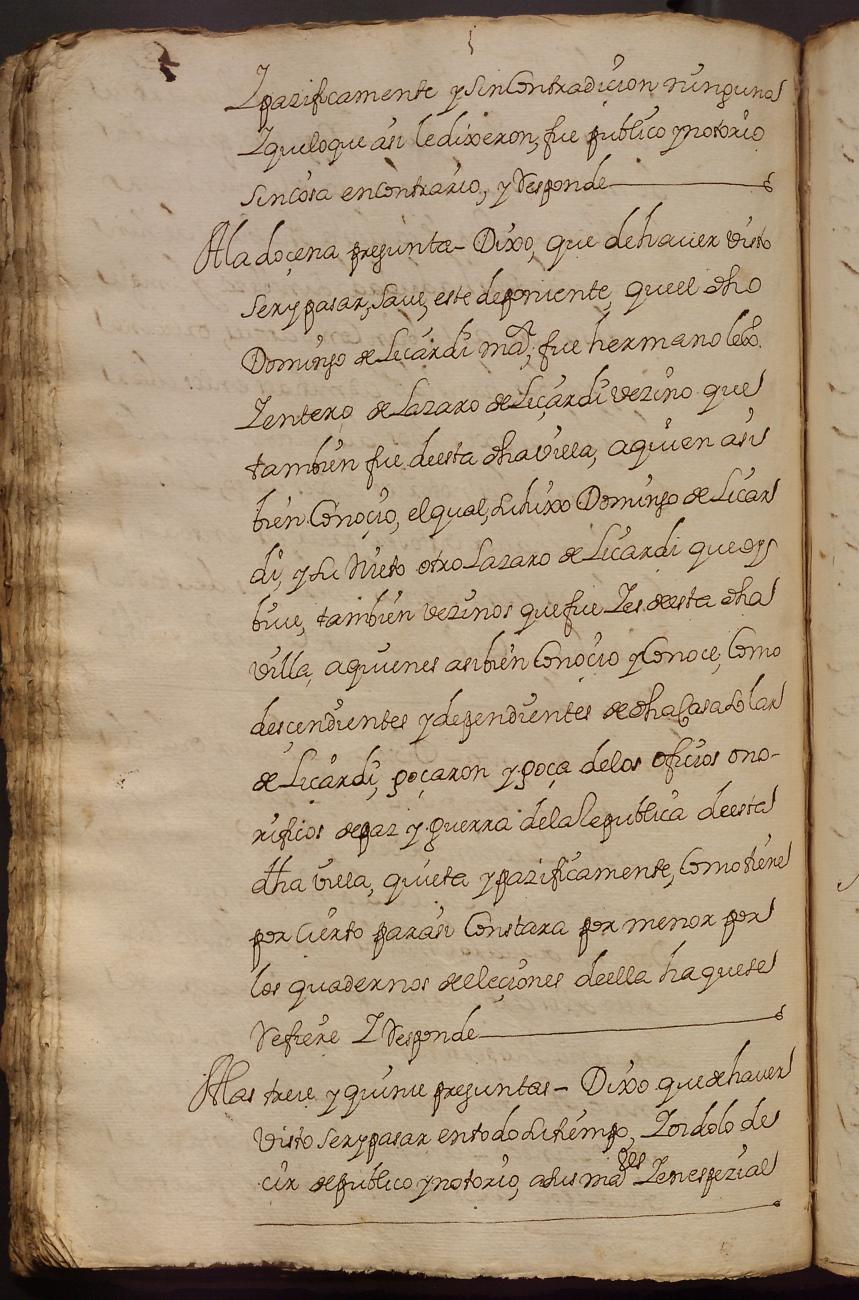 Y pazificamente y sin Contradicion ninguna
Y que lo que asi le dixeron, fue publico y notorio
sin cosa en contrario, y Responde
A la doçena pregunta - Dixo, que de haver visto
ser y pasar, save, este deponiente, que el dho
Domingo de Licardi maõr, fue hermano lex.
Y entero de Lazaro de Liçardi vezino que
tambien fue de esta dha villa, a quien asi
bien Conoçio, el qual, su hixo Domingo de Licar
di, y su Nieto otro Lazaro de Licardi que oy
bive, tambien vezinos que fue Y es de esta dha
villa, a quienes asi bien Conoçio y Conoce, Como
descendientes y dependientes de dha Casa solar
de Licardi, goçaron y goça de los oficios ono-
rificos de paz y guerra de la Republica de esta
dha villa, quieta y pazificamente, Como tiene
por Cierto para si Constara por menor por
los quadernos de eleçiones de ella ha que se
Refiere Y Responde
A las treze y quinze preguntas - Dixo que de haver
visto ser y pasar en todo su tiempo, Y oidolo de
cir de publico y notorio, a sus maiores Y en espezial